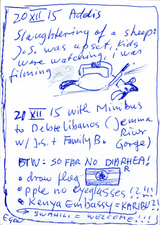 20 XII 15 Addis
Slaughtering of a sheep:
J.S. was upset, kids
were watching, i was
filming
21 XII 15 with Minibus
to Debre Libanos (Jemma
River
w/ J.S. + Family B. Gorge)
BTW: SO FAR NO DIARHEA!
• draw flag
R
• pple no eyeglasses!?!!!
• Kenya Embassy = KARIBU
SWAHILI = WELCOME!!!